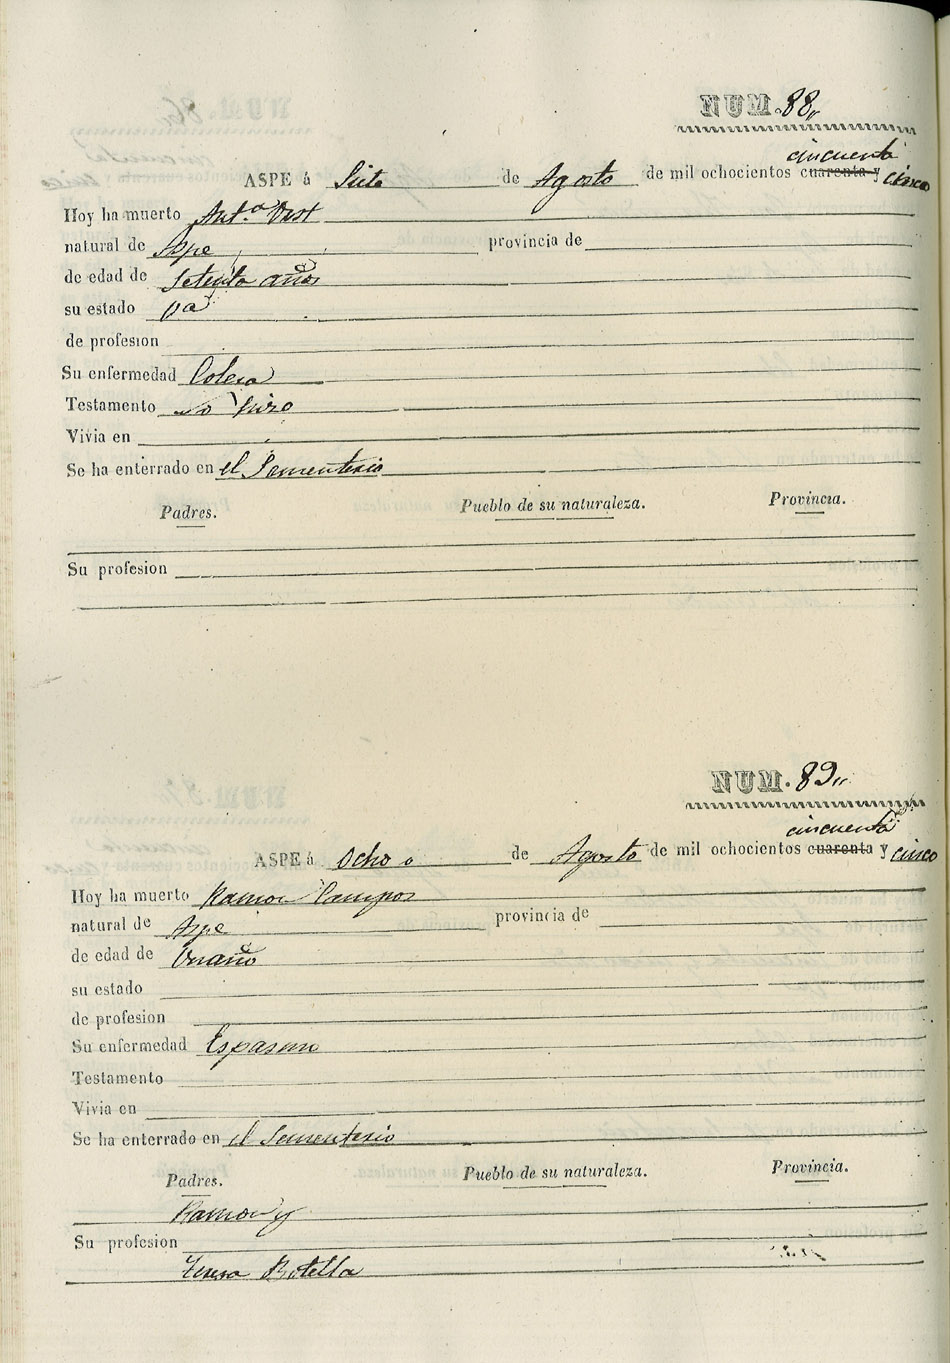 NUM. 88,,
cincuenta
ASPE á Siete de Agosto de mil ochocientos cuarenta y cinco
Hoy ha muerto Ant.ª
natural de Aspe provincia de
de edad de Setenta años
su estado
de profesion
Su enfermedad Colera
Testamento No hizo
Vivia en
Se ha enterrado en el Sementerio
Padres. Pueblo de su naturaleza. Provincia.
Su profesion
NUM. 89,,
cincuenta
ASPE á Ocho de Agosto de mil ochocientos cuarenta y cinco
Hoy ha muerto Ramon Campos
natural de Aspe provincia de
de edad de Un año
su estado
de profesion
Su enfermedad Espasmo
Testamento
Vivia en
Se ha enterrado en el Sementerio
Padres. Pueblo de su naturaleza. Provincia.
Ramon y
Su profesion
Teresa Botella